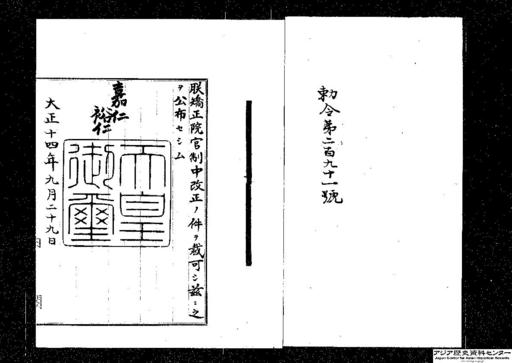 勅令第二百九十一號
朕矯正院官制中改正ノ件ヲ裁可シ茲ニ之
ヲ公布セシム
嘉仁
裕仁
天皇
御璽
大正十四年九月二十九日
アジア歴史資料センター
Japan Center for Asian Historical Records